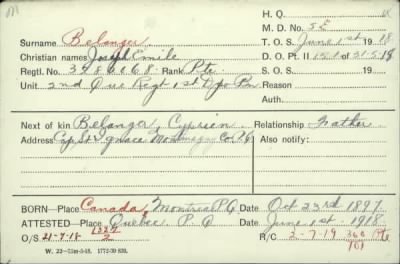 H. Q.
M. D. No. 5E
Surname Belanger
T. O. S. June 1st 1918
Christian names Joseph Emile
D. O. Pt. II 151 of 31-5-18
Regtl. No. 3380068 Rank Pte
S. O. S. 19
Unit 2nd Que Regt 1st Dpo Bn Reason
Auth.
Next of kin Belanger, Cyprien Relationship Father
Address Cap St Ignace Montmagny Co. P.Q. Also notify:
BORN—Place Canada, Montreal P.Q. Date Oct 23rd 1897
ATTESTED—Place Quebec P.Q. Date June 1st 1918
O/S 21-7-18 R/C 2-7-19 Pte
W. 23—75m-5-18. 1772-39 839.